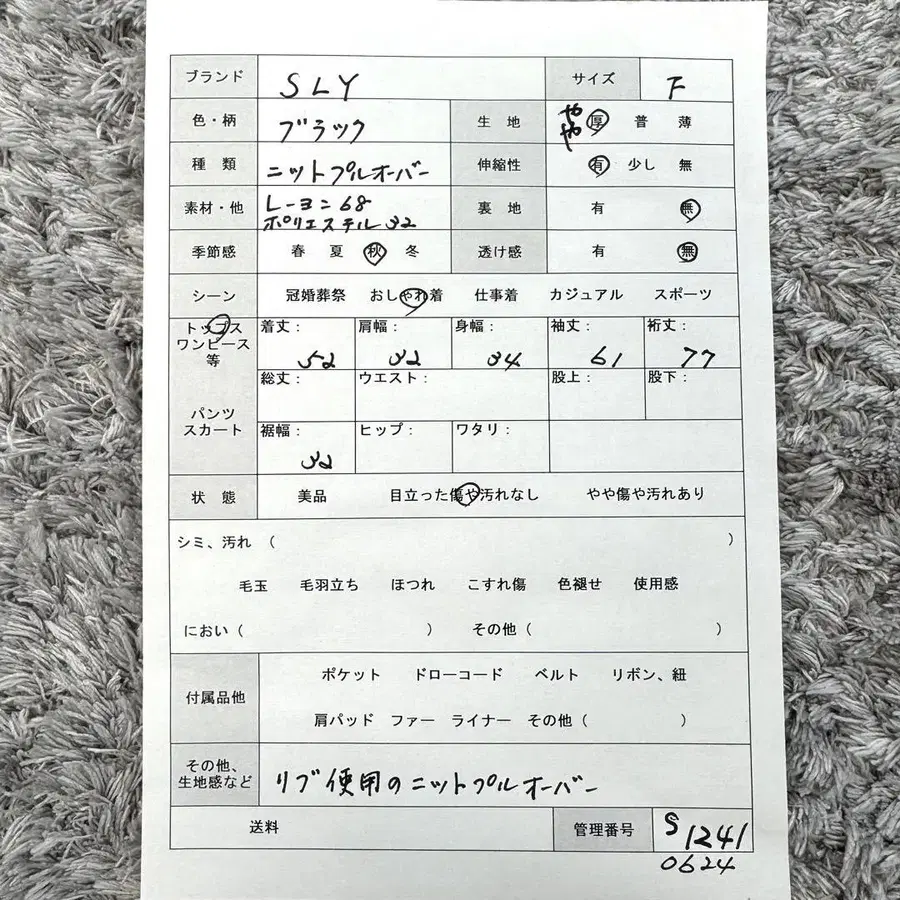 ブランド SLY サイズ F
色・柄 ブラック 生地 やや 厚 普 薄
種類 ニットプルオーバー 伸縮性 有 少し 無
素材・他 レーヨン68
ポリエステル32 裏地 有 無
季節感 春 夏 秋 冬 透け感 有 無
シーン 冠婚葬祭 おしゃれ着 仕事着 カジュアル スポーツ
トップス
ワンピース
等
着丈: 52 肩幅: 32 身幅: 34 袖丈: 61 裄丈: 77
総丈: ウエスト: 股上: 股下:
パンツ
スカート
裾幅: 32 ヒップ: ワタリ:
状態 美品 目立った傷や汚れなし やや傷や汚れあり
シミ、汚れ ( )
毛玉 毛羽立ち ほつれ こすれ傷 色褪せ 使用感
におい ( ) その他 ( )
付属品他 ポケット ドローコード ベルト リボン、紐
肩パッド ファー ライナー その他 ( )
その他、
生地感など
リブ使用のニットプルオーバー
送料 管理番号 S1241
0624